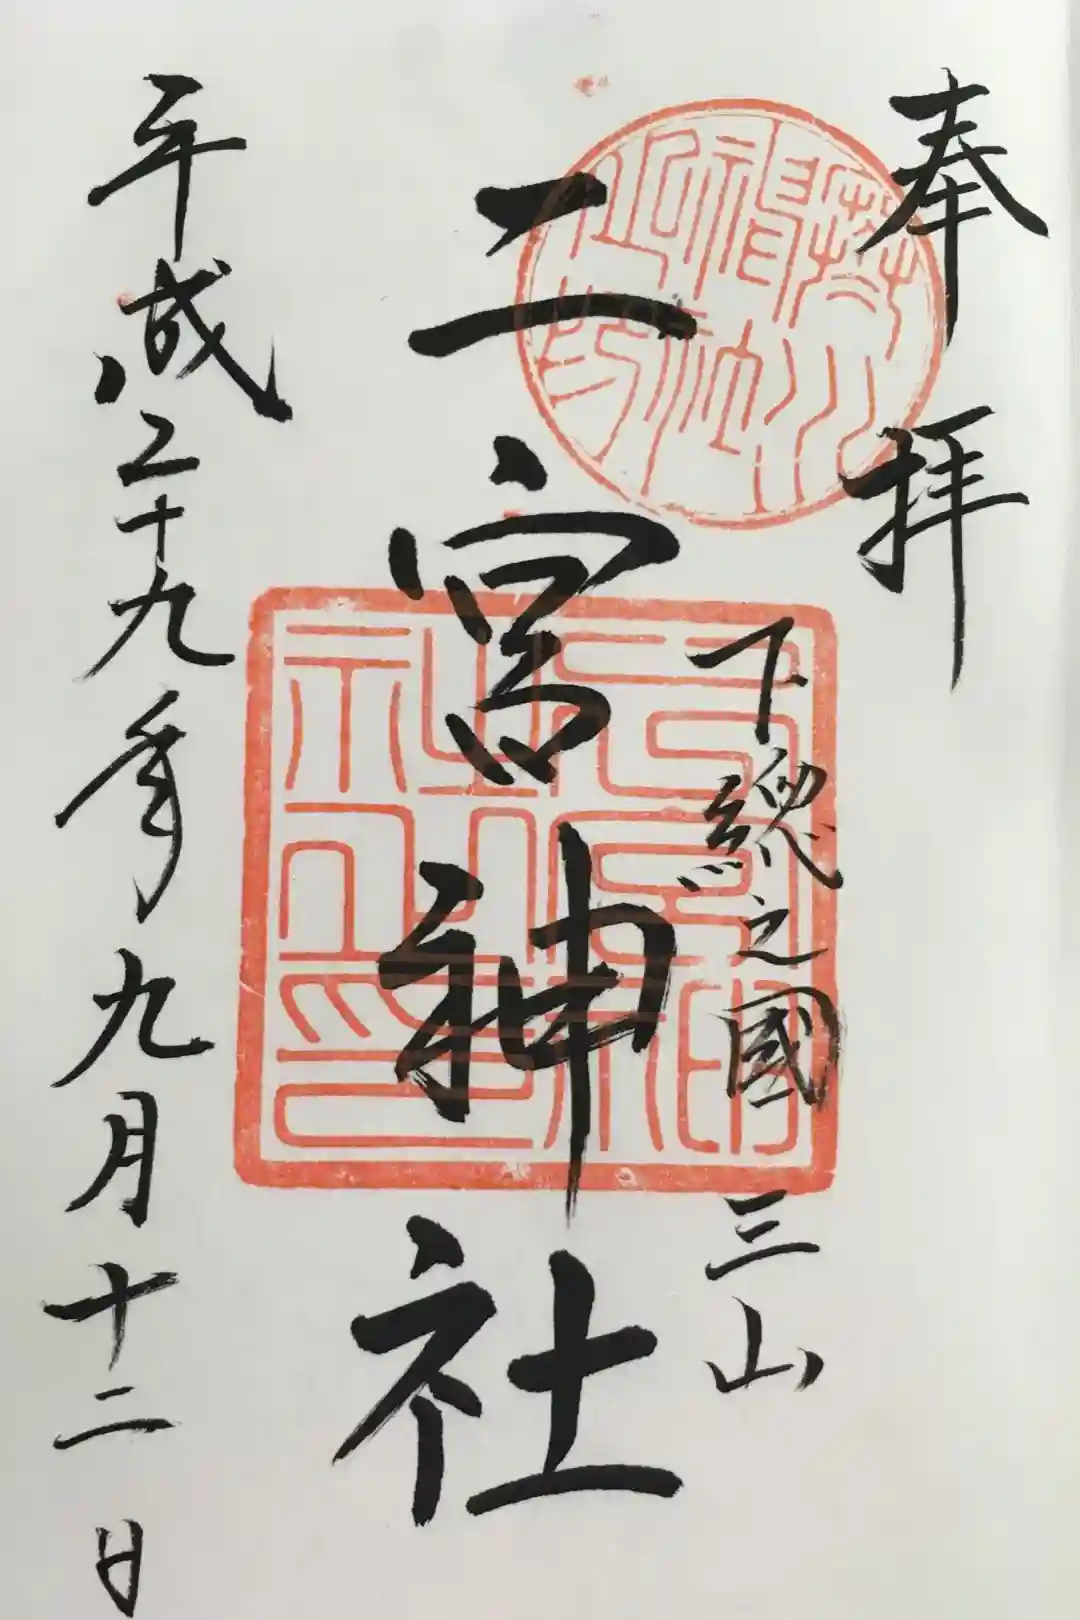 奉拝
下總之國 三山
二宮神社
平成二十九年九月十二日